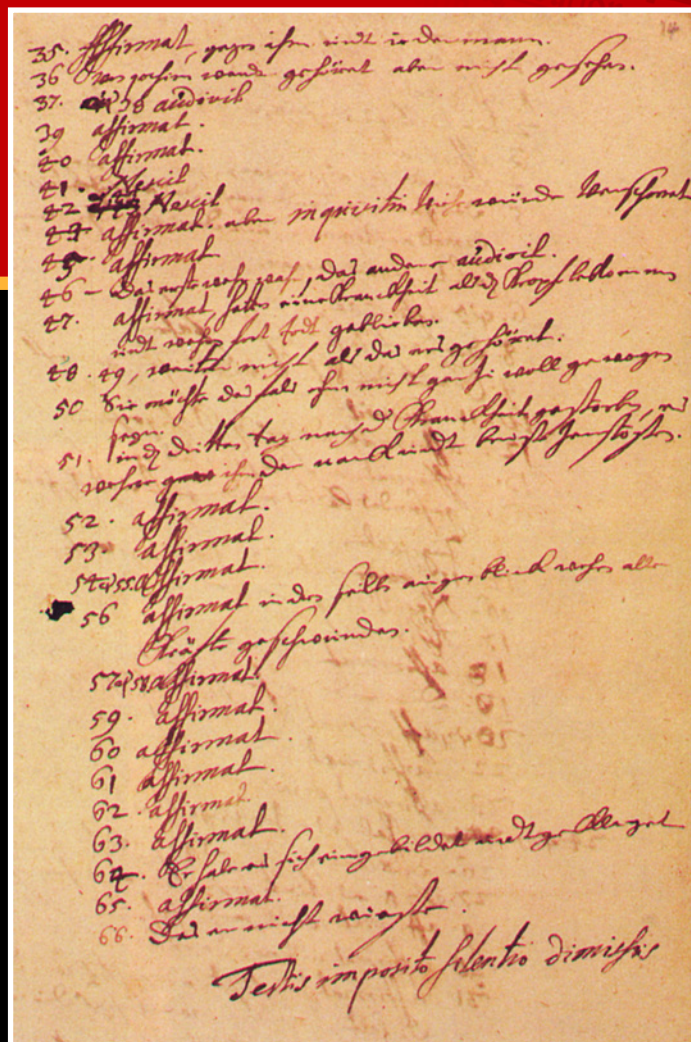 14
35. Affirmat, gegen ihn undt iederman.
36 gehöret aber nicht gesehen.
37. et 38 audivit
39 affirmat.
40 affirmat.
41. Nescit
42 Nescit
44 affirmat. aber inquisitin würde
45 affirmat
46 - Das erste wahr, das andere audivit.
47. affirmat, hatte eine Kranckheit
undt todt geblieben.
48. 49, nicht als das gehöret.
50 Sie möchte nicht woll gewogen
sein.
51. dritten tag nach der Kranckheit gestorben,
52. affirmat.
53. affirmat.
54 et 55. affirmat.
56 affirmat in der selb augenblick alle
Kräfte geschwunden.
57 et 58. affirmat.
59. affirmat.
60 affirmat.
61 affirmat.
62. affirmat
63. affirmat.
64. Er habe es sich eingebildet undt geklaget
65. affirmat.
66. Das er nicht wüste.
Testis imposito silentio dimissus